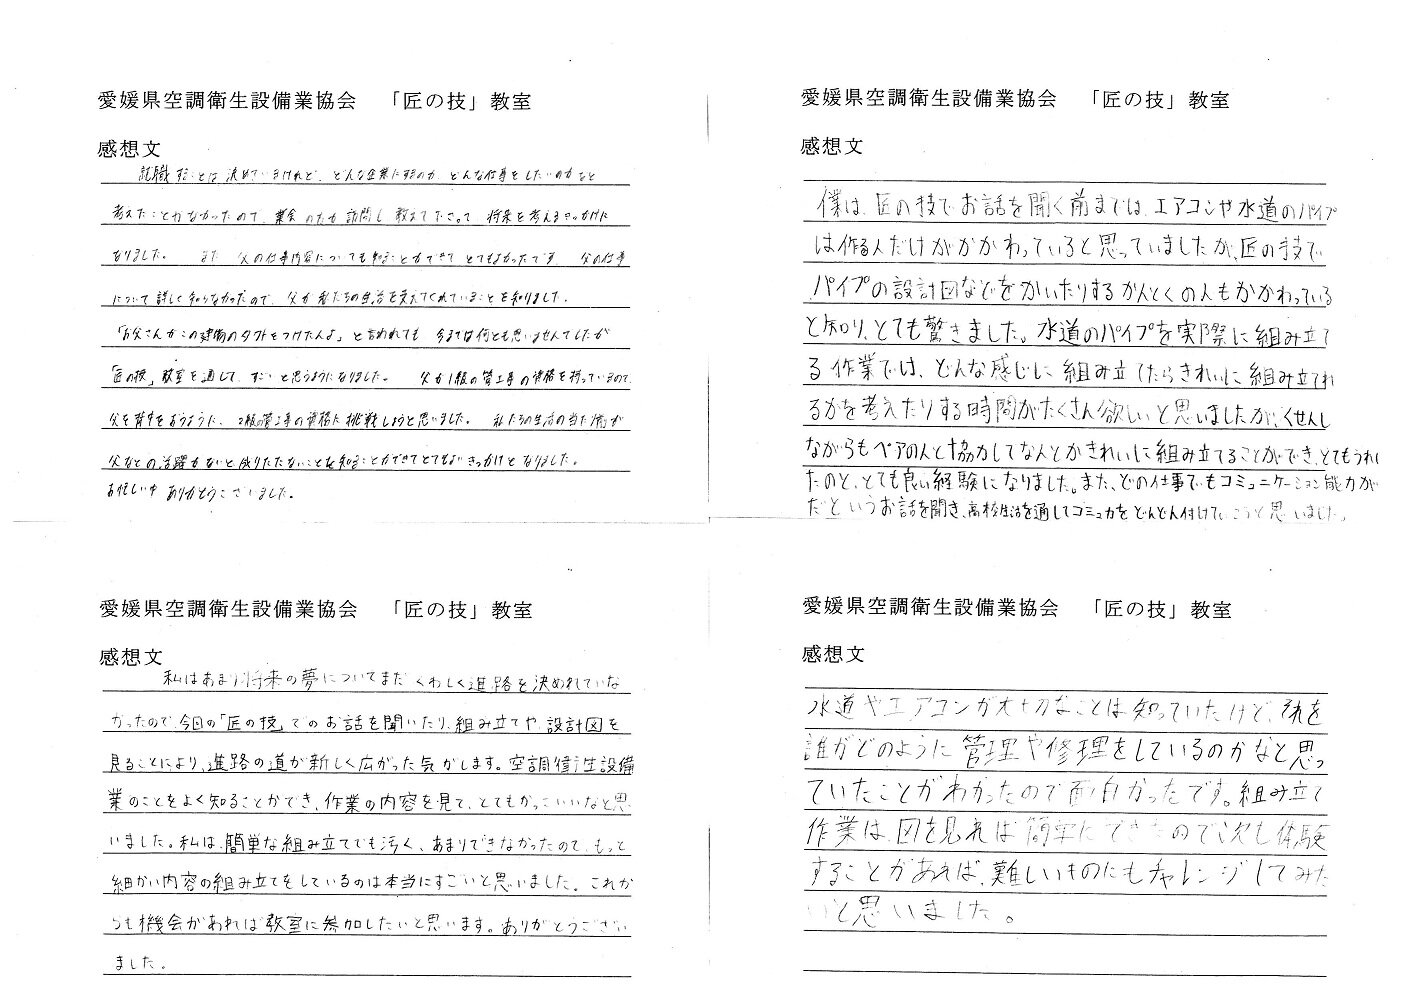 愛媛県空調衛生設備業協会　「匠の技」教室
感想文
就職することは決めているけれど、どんな企業にするのか、どんな仕事をしたいのかなど
考えたことがなかったので、業会の方が訪問し教えて下さって将来を考えるきっかけに
なりました。また、父の仕事内容についても知ることができてとてもよかったです。父の仕事
について詳しく知らなかったので、父が私たちの生活を支えてくれていることを知りました。
「お父さんがこの建物のダクトをつけたんよ」と言われても今までは何とも思いませんでしたが
「匠の技」教室を通して、すごいと思うようになりました。父が1級の管工事の資格を持っているので、
父を背中をおうように、2級の管工事の資格に挑戦しようと思いました。私たちの生活の当たり前が
父などの活躍がないと成りたたないことを知ることができてとてもよいきっかけとなりました。
お忙しい中ありがとうございました。
愛媛県空調衛生設備業協会　「匠の技」教室
感想文
僕は、匠の技でお話を聞く前までは、エアコンや水道のパイプ
は作る人だけがかかわっていると思っていましたが、匠の技で
パイプの設計図などをかいたりするかんとくの人もかかわっている
と知り、とても驚きました。水道のパイプを実際に組み立て
る作業では、どんな感じに組み立てたらきれいに組み立てれ
るかを考えたりする時間がたくさん欲しいと思いましたが、くせんし
ながらもペアの人と協力してなんとかきれいに組み立てることができ、とてもうれし
たのと、とても良い経験になりました。また、どの仕事でもコミュニケーション能力が
だというお話を聞き、高校生活を通してコミュ力をどんどん付けていこうと思いました。
愛媛県空調衛生設備業協会　「匠の技」教室
感想文
私はあまり将来の夢についてまだくわしく進路を決めれていな
かったので、今回の「匠の技」でのお話を聞いたり、組み立てや、設計図を
見ることにより、進路の道が新しく広がった気がします。空調衛生設備
業のことをよく知ることができ、作業の内容を見て、とてもかっこいいなと思
いました。私は、簡単な組み立てでも汚く、あまりできなかったので、もっと
細かい内容の組み立てをしているのは本当にすごいと思いました。これか
らも機会があれば教室に参加したいと思います。ありがとうござい
ました。
愛媛県空調衛生設備業協会　「匠の技」教室
感想文
水道やエアコンが大切なことは知っていたけど、それを
誰がどのように管理や修理をしているのかなと思っ
ていたことがわかったので面白かったです。組み立て
作業は、図を見れば簡単にできたので次も体験
することがあれば、難しいものにもチャレンジしてみた
いと思いました。